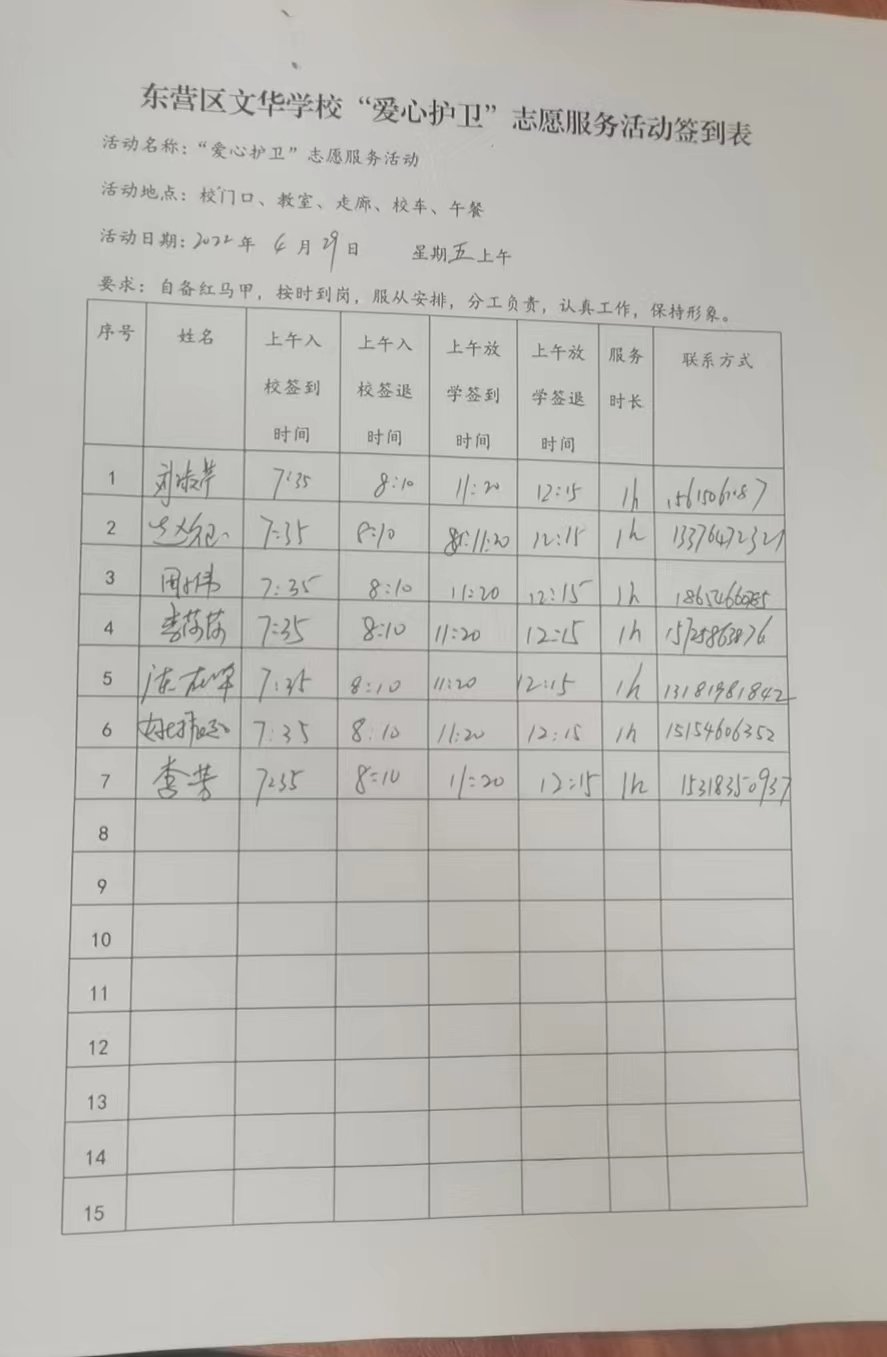 东营区文华学校“爱心护卫”志愿服务活动签到表
活动名称：“爱心护卫”志愿服务活动
活动地点：校门口、教室、走廊、校车、午餐
活动日期：2022年 4月29日 星期五上午
要求：自备红马甲，按时到岗，服从安排，分工负责，认真工作，保持形象。
序号 姓名 上午入校签到时间 上午入校签退时间 上午放学签到时间 上午放学签退时间 服务时长 联系方式
1 7:35 8:10 11:20 12:15 1h
2 7:35 8:10 11:20 12:15 1h 13376472321
3 7:35 8:10 11:20 12:15 1h
4 李莎莎 7:35 8:10 11:20 12:15 1h 15725863876
5 7:35 8:10 11:20 12:15 1h 13181981842
6 7:35 8:10 11:20 12:15 1h 15154606352
7 李芳 7:35 8:10 11:20 12:15 1h 15318350937
8
9
10
11
12
13
14
15